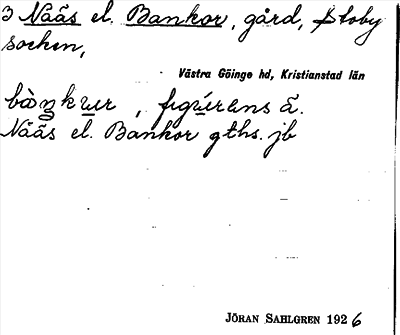 3 Nääs el. Bankor, gård, Stoby
socken,
Västra Göinge hd, Kristianstad län
Nääs el. Bankor gths. jb
JÖRAN SAHLGREN 1926